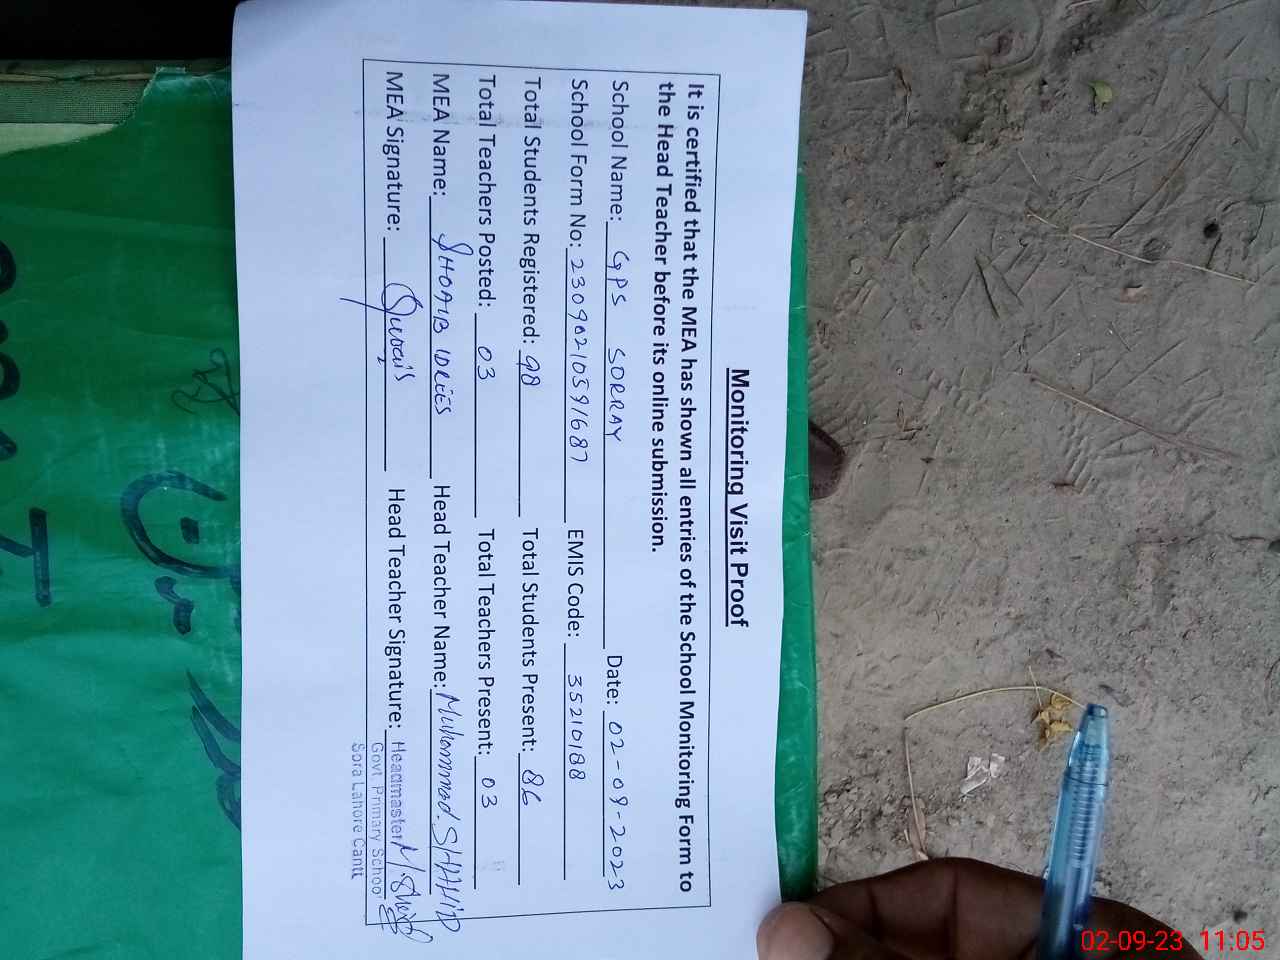 Monitoring Visit Proof
It is certified that the MEA has shown all entries of the School Monitoring Form to
the Head Teacher before its online submission.
School Name: GPS SORRAY Date: 02-09-2023
School Form No: 23090210591687 EMIS Code: 35210188
Total Students Registered: 98 Total Students Present: 86
Total Teachers Posted: 03 Total Teachers Present: 03
MEA Name: SHOAIB IDREES Head Teacher Name: Muhammad. SHAHID
MEA Signature: Head Teacher Signature: Headmaster
Govt. Primary School
Sora Lahore Cantt
02-09-23 11:05